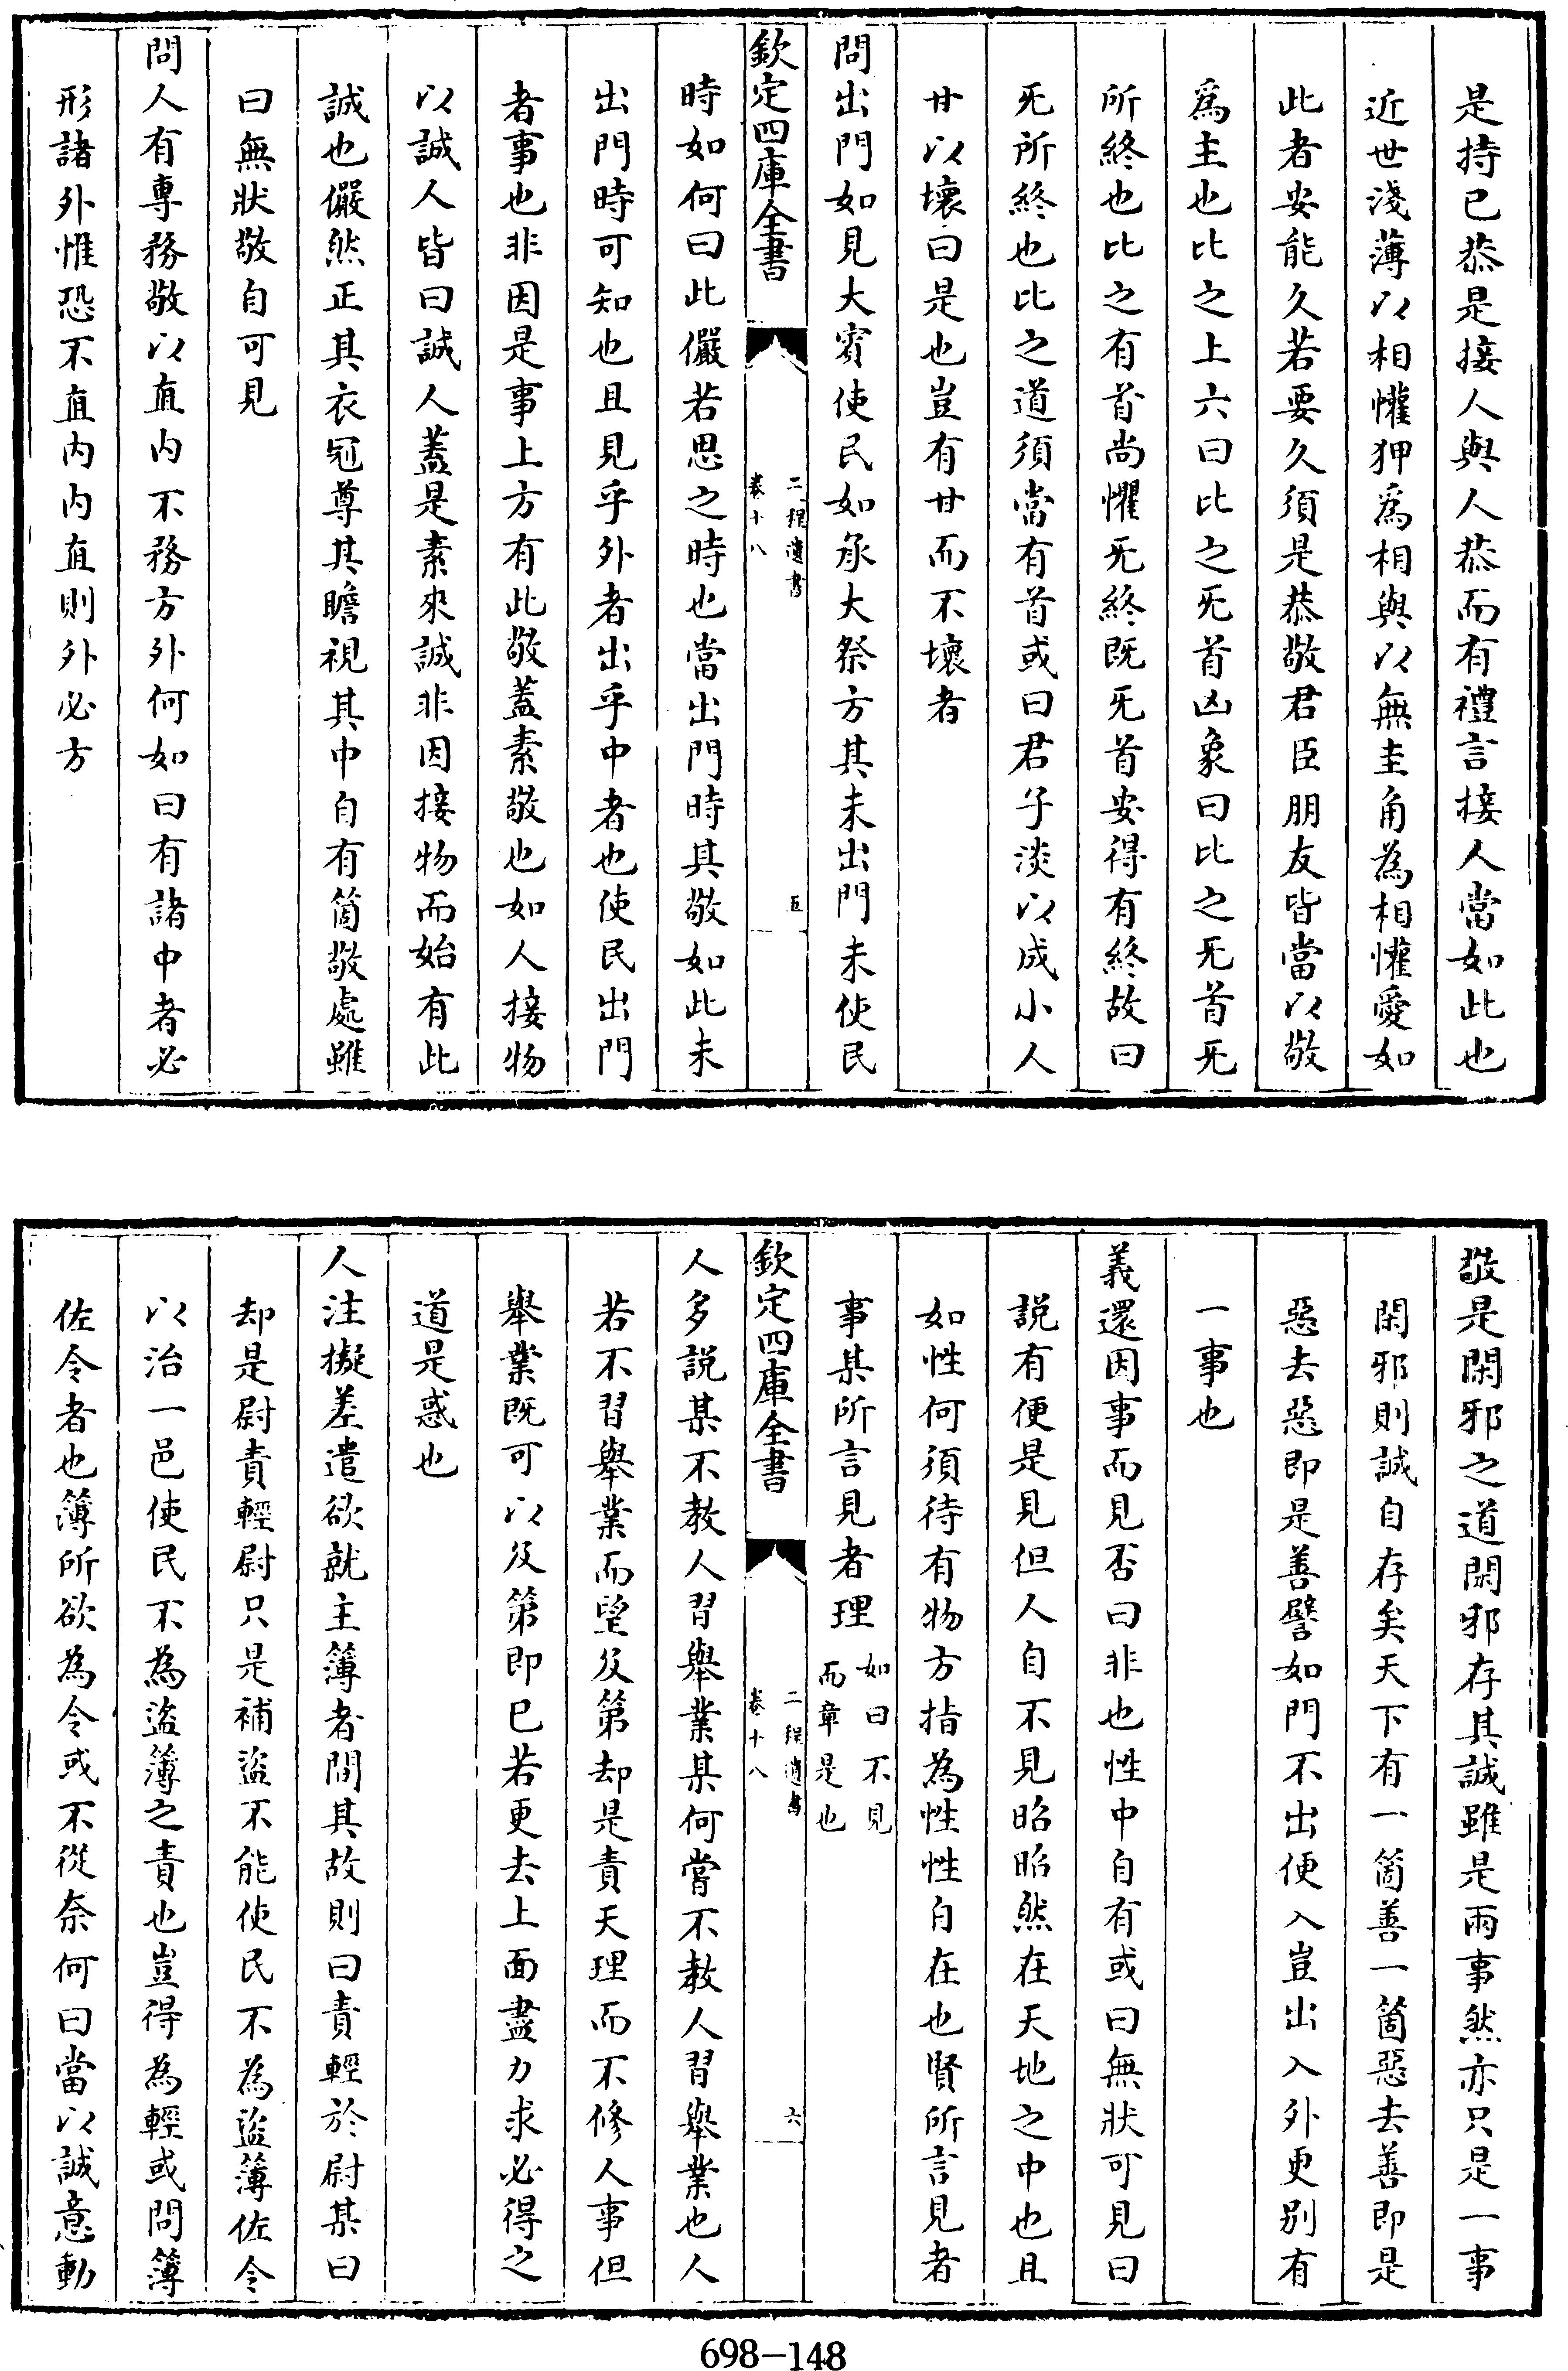 是持己恭是接人與人恭而有禮言接人當如此也
近世淺薄以相懽狎爲相與以無圭角為相懽愛如
此者安能久若要久須是恭敬君臣朋友皆當以敬
爲主也比之上六曰比之旡首凶象曰比之旡首旡
所終也比之有首尚懼旡終既旡首安得有終故曰
旡所終也比之道須當有首或曰君子淡以成小人
甘以壞曰是也豈有甘而不壞者
問出門如見大賓使民如承大祭方其未出門未使民
欽定四庫全書
二程遺書
卷十八
五
時如何曰此儼若思之時也當出門時其敬如此未
出門時可知也且見乎外者出乎中者也使民出門
者事也非因是事上方有此敬蓋素敬也如人接物
以誠人皆曰誠人蓋是素來誠非因接物而始有此
誠也儼然正其衣冠尊其瞻視其中自有箇敬處雖
曰無狀敬自可見
問人有專務敬以直內不務方外何如曰有諸中者必
形諸外惟恐不直內內直則外必方
敬是閑邪之道閑邪存其誠雖是兩事然亦只是一事
閑邪則誠自存矣天下有一箇善一箇惡去善即是
惡去惡即是善譬如門不出便入豈出入外更別有
一事也
義還因事而見否曰非也性中自有或曰無狀可見曰
説有便是見但人自不見昭昭然在天地之中也且
如性何須待有物方指為性性自在也賢所言見者
事某所言見者理如曰不見
而章是也
欽定四庫全書
二程遺書
卷十八
六
人多説某不教人習舉業某何嘗不教人習舉業也人
若不習舉業而望及第却是責天理而不修人事但
舉業既可以及第即已若更去上面盡力求必得之
道是惑也
人注擬差遣欲就主簿者問其故則曰責輕於尉某曰
却是尉責輕尉只是補盜不能使民不為盜簿佐令
以治一邑使民不為盜簿之責也豈得為輕或問簿
佐令者也簿所欲為令或不從奈何曰當以誠意動
698-148